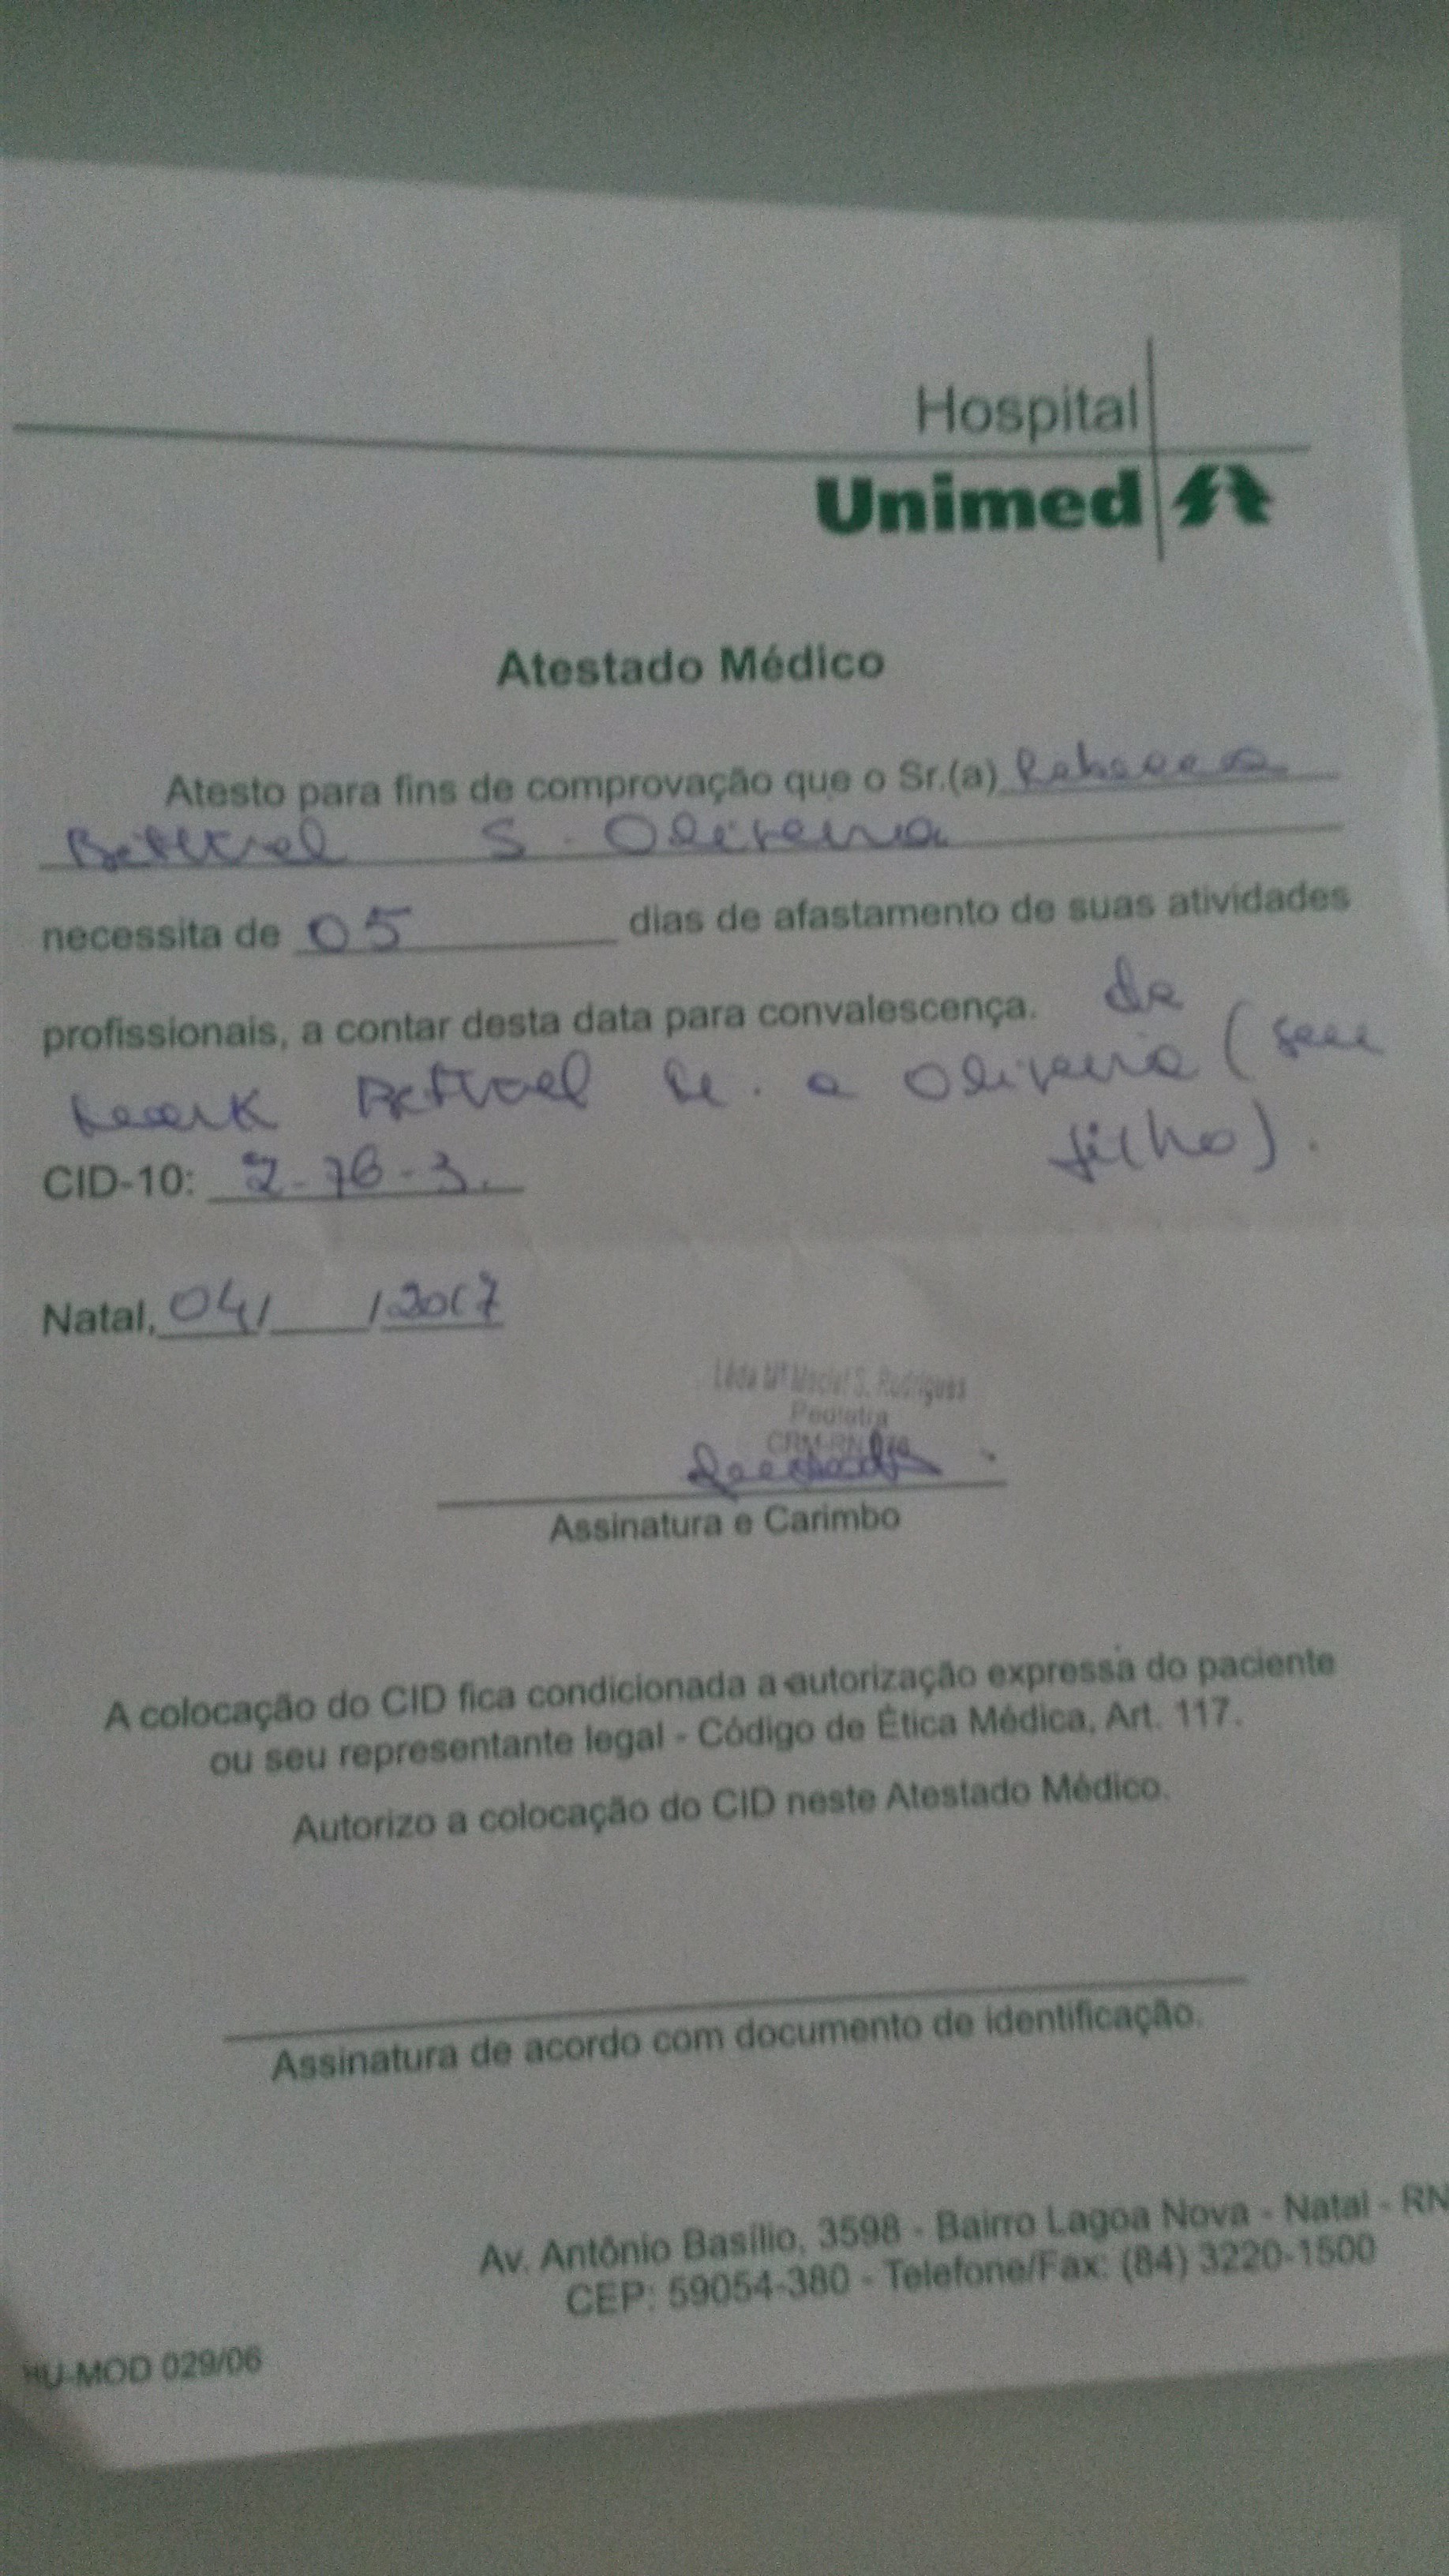 Hospital
Unimed
Atestado Médico
Atesto para fins de comprovação que o Sr.(a) Rebecca
S. Oliveira
necessita de 05 dias de afastamento de suas atividades
profissionais, a contar desta data para convalescença. de
Oliveira (seu
filho).
CID-10: Z-76-3.
Natal, 04/ /2017
Lêda Mª Maciel S. Rodrigues
Pediatra
CRM-RN
Assinatura e Carimbo
A colocação do CID fica condicionada a autorização expressa do paciente
ou seu representante legal - Código de Ética Médica, Art. 117.
Autorizo a colocação do CID neste Atestado Médico.
Assinatura de acordo com documento de identificação.
Av. Antônio Basílio, 3598 - Bairro Lagoa Nova - Natal - RN
CEP: 59054-380 - Telefone/Fax: (84) 3220-1500
HU-MOD 029/06